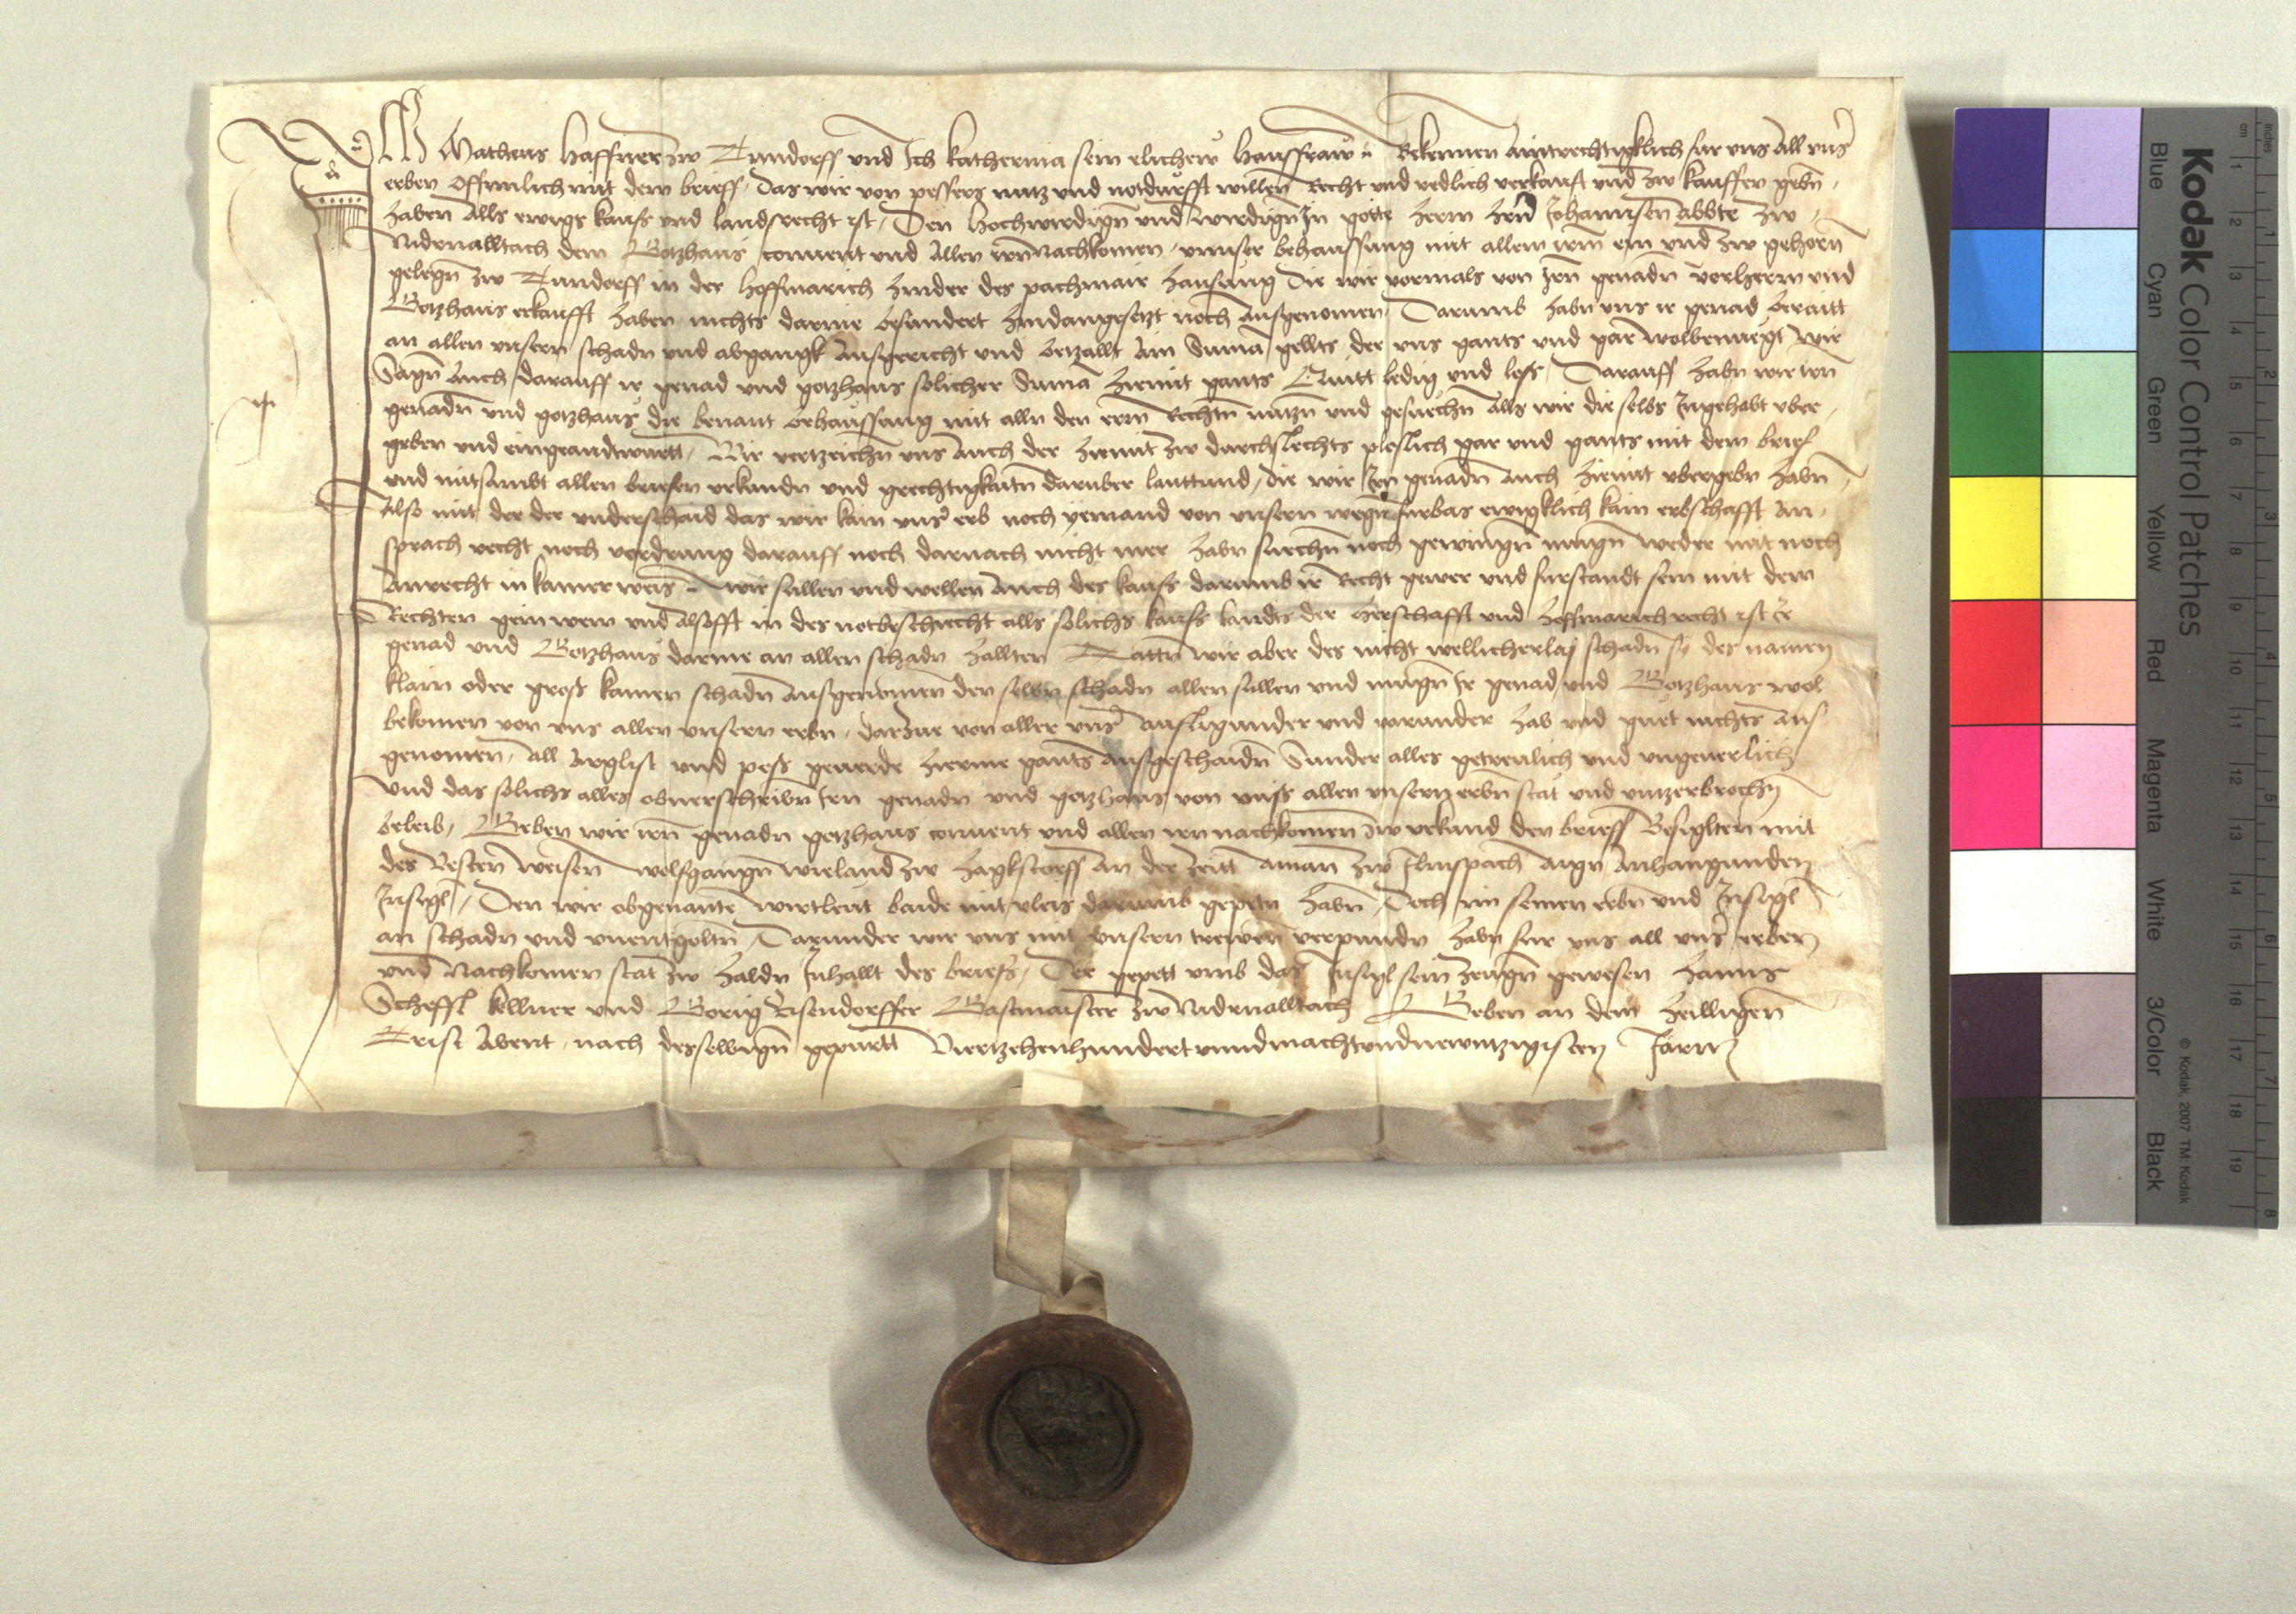 Ich Matheus Haffner zw Tundorff und Ich Katherina sein elichew Hausfraw Bekennen Aintrechtigklich fur uns All uns'
erben Offennlich mit dem brieff, das wir von pessers nutz und notdurfft willen Recht und redlich verkaufft und zw kauffen gebn
haben Alls ewigs kaufs und landsrecht ist, Den Hochwirdign und wirdign In gotte herrn hern Johannsen Abbte zw
Nidernalltach dem Gotzhaus convent und Allen irn Nachkomen, unnser behaussung mit allem irm ein und zw gehorn
gelegn zw Tundorff in der Hoffmarich hinder des pachmair hausung die wir vormals von irn genadn vorherrn und
Gotzhaus erkaufft haben nichts darine besundert hindangesetzt noch Ausgenomen, Darumb habn uns ir genad beraitt
an allen unsern schadn und abgangk Ausgericht und betzallt Am Suma gellts, der uns gants und gar wolbenuegt Wir
Sagn Auch darauff ir genad und gotzhaus solicher Suma hiemit gants Quitt ledig und loss, Darauff habn wir irn
genadn und gotzhaus die benant behaussung mit alln den eern Rechtn nutzn und gesuechn Alls wir die selbs Ingehabt uber
geben und eingeandtwurtt, Wir vertzeichn uns Auch der hiemit zw durchslechts pleslich gar und gants mit dem brief
und mitsambt allen briefen urkundn und grechtigkaitn daruber lauttund, die wir Irn genadn Auch hiemit ubergebn habn
Also mit der der underschaid das wir kain uns' erb noch yemand von unsern wegn furbas ewigklich kain erbschafft An
sprach recht noch vordrung darauff noch darnach nicht mer habn suechn noch gewingn mugn weder mit noch
Anrecht in kainer weis, wir sullen und wellen Auch des kaufs darumb ir Recht gewer und furstandt sein mit dem
Rechten gein wem und Alsofft in des notbeschiecht alls solichs kaufs landts der Herschafft und Hoffmarich recht ist Ir
genad und Gotzhaus darine an allen schadn hallten Tattn wir aber des nicht wellicherlaj schadn sy des namen
klain oder gross kainen schadn Ausgenomen den selbn schadn allen sullen und mugn Ir genad und Gotzhaus wol
bekomen von uns allen unsern erbn, darzue von aller uns' Aufligunder und varunder hab und guet nichts Aus
genomen, All Arglist und poss geverde hierine gants Ausgeschaidn Sunder alles getreulich und ungeverlich
Und das solichs alles obverschribn irn genadn und gotzhaus von unss allen unsern erbn stat und untzerbrochn
beleib, Geben wir irn genadn gotzhaus convent und allen irn nachkomen zw urkund den brieff Besiglten mit
des Vesten Weisen Wolfgangn Wieland zw Hagkstorff An der Zeitt Aman zw Flinspach Aign Anhangunden
Insigl, Den wir obgenante wirtleut baide mit vleis darumb gepetn habn, Doch im seinen erbn und Insigl
an schadn und unentgoltn, Darunder wir uns mit unsern trewen verpundn habn fur uns all uns' erben
und Nachkomen stat zw haldn Inhallt des briefs, Der gepett umb das Insigl sein zeugn gewesen Hanns
Scheffl kellner und Gorig Eisendorffer Gastmaister zw Nidernalltach Geben an dem Heilligen
Crist Abent, nach desselbign gepurtt Viertzehenhundert unnd im achtundnewntzigisten Jarn
Kodak Color Control Patches
Blue Cyan Green Yellow Red Magenta White 3/Color Black
© Kodak, 2007 TM: Kodak
cm 1 2 3 4 5 6 7 8 9 10 11 12 13 14 15 16 17 18 19
inches 1 2 3 4 5 6 7 8